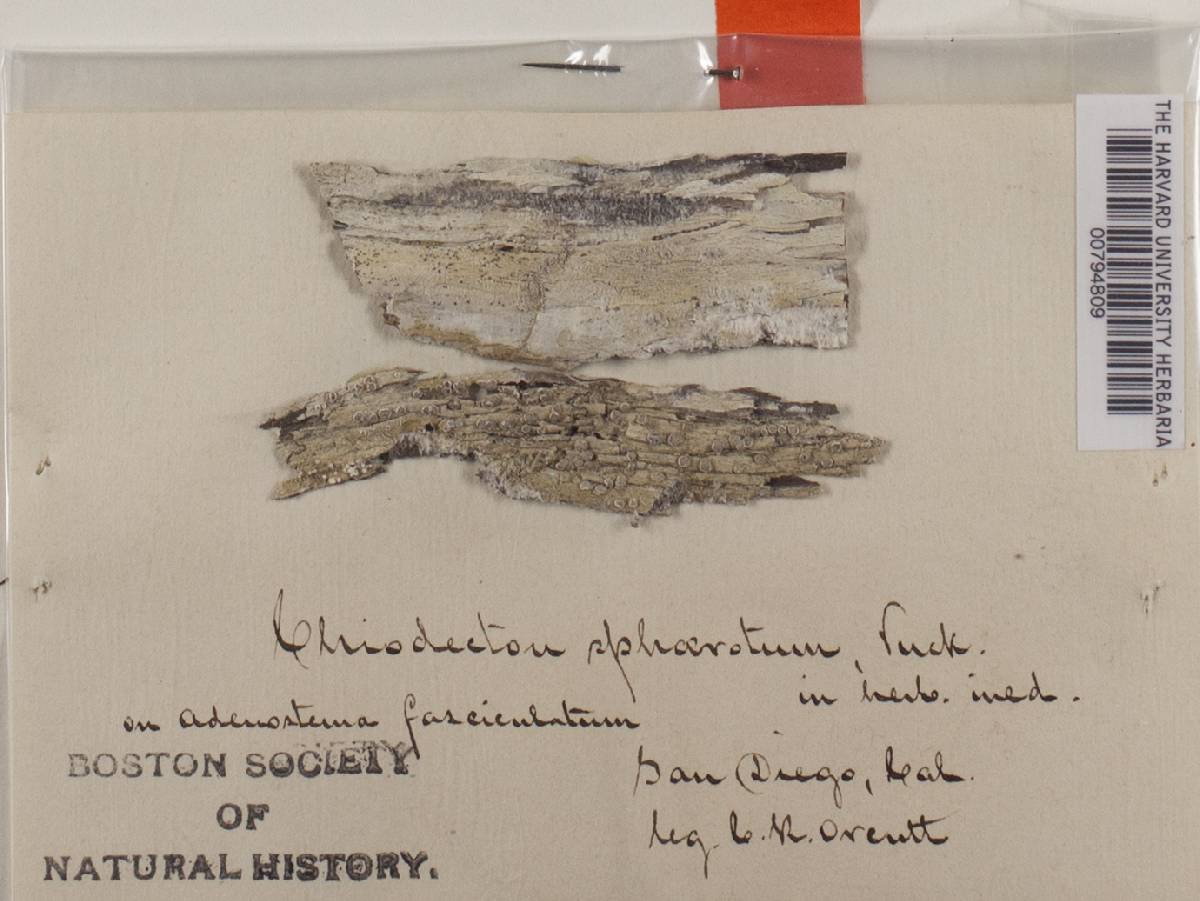 THE HARVARD UNIVERSITY HERBARIA
00794809
Chiodecton sphærotum, Tuck.
in herb. ined.
on adenostema fasciculatum
BOSTON SOCIETY
OF
NATURAL HISTORY.
San Diego, Cal.
leg. C. R. Orcutt